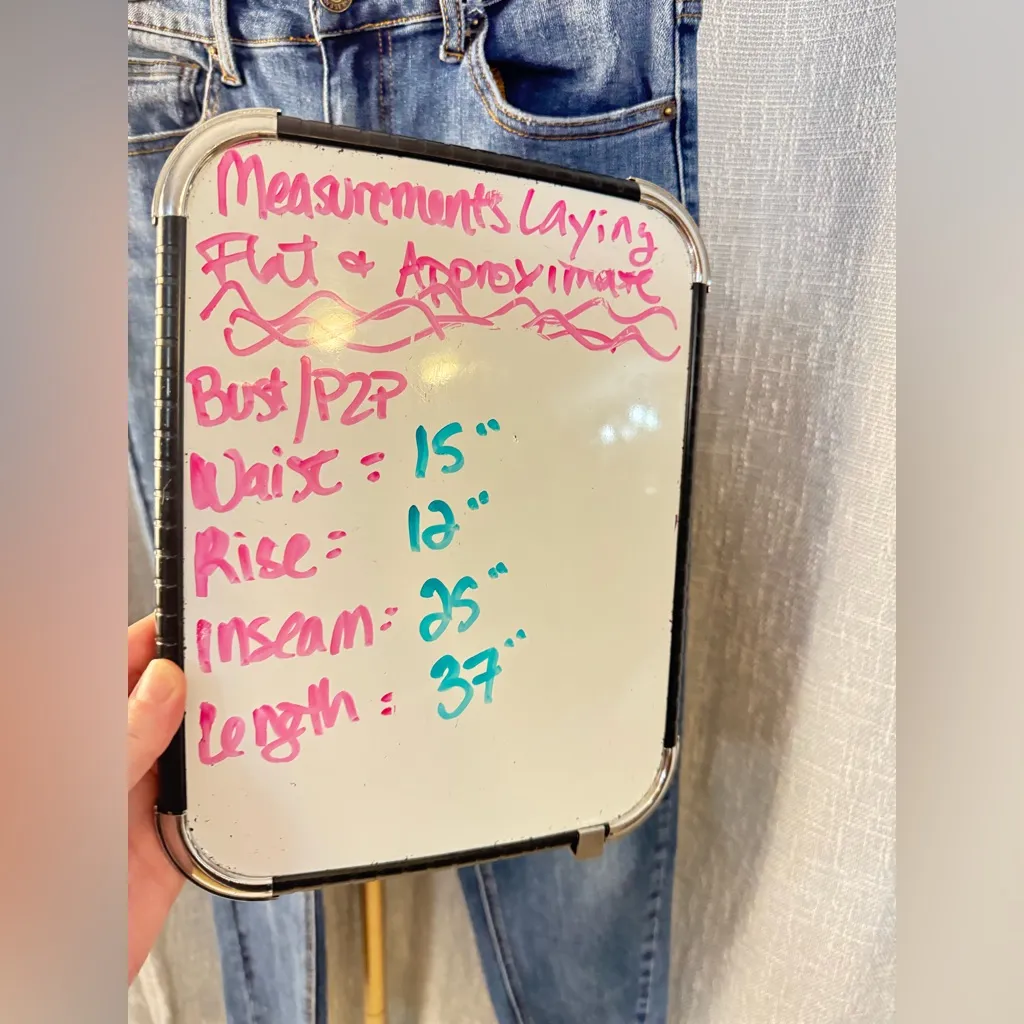 Measurements Laying
Flat & Approximate
Bust/P2P
Waist = 15"
Rise = 12"
Inseam = 25"
Length = 37"